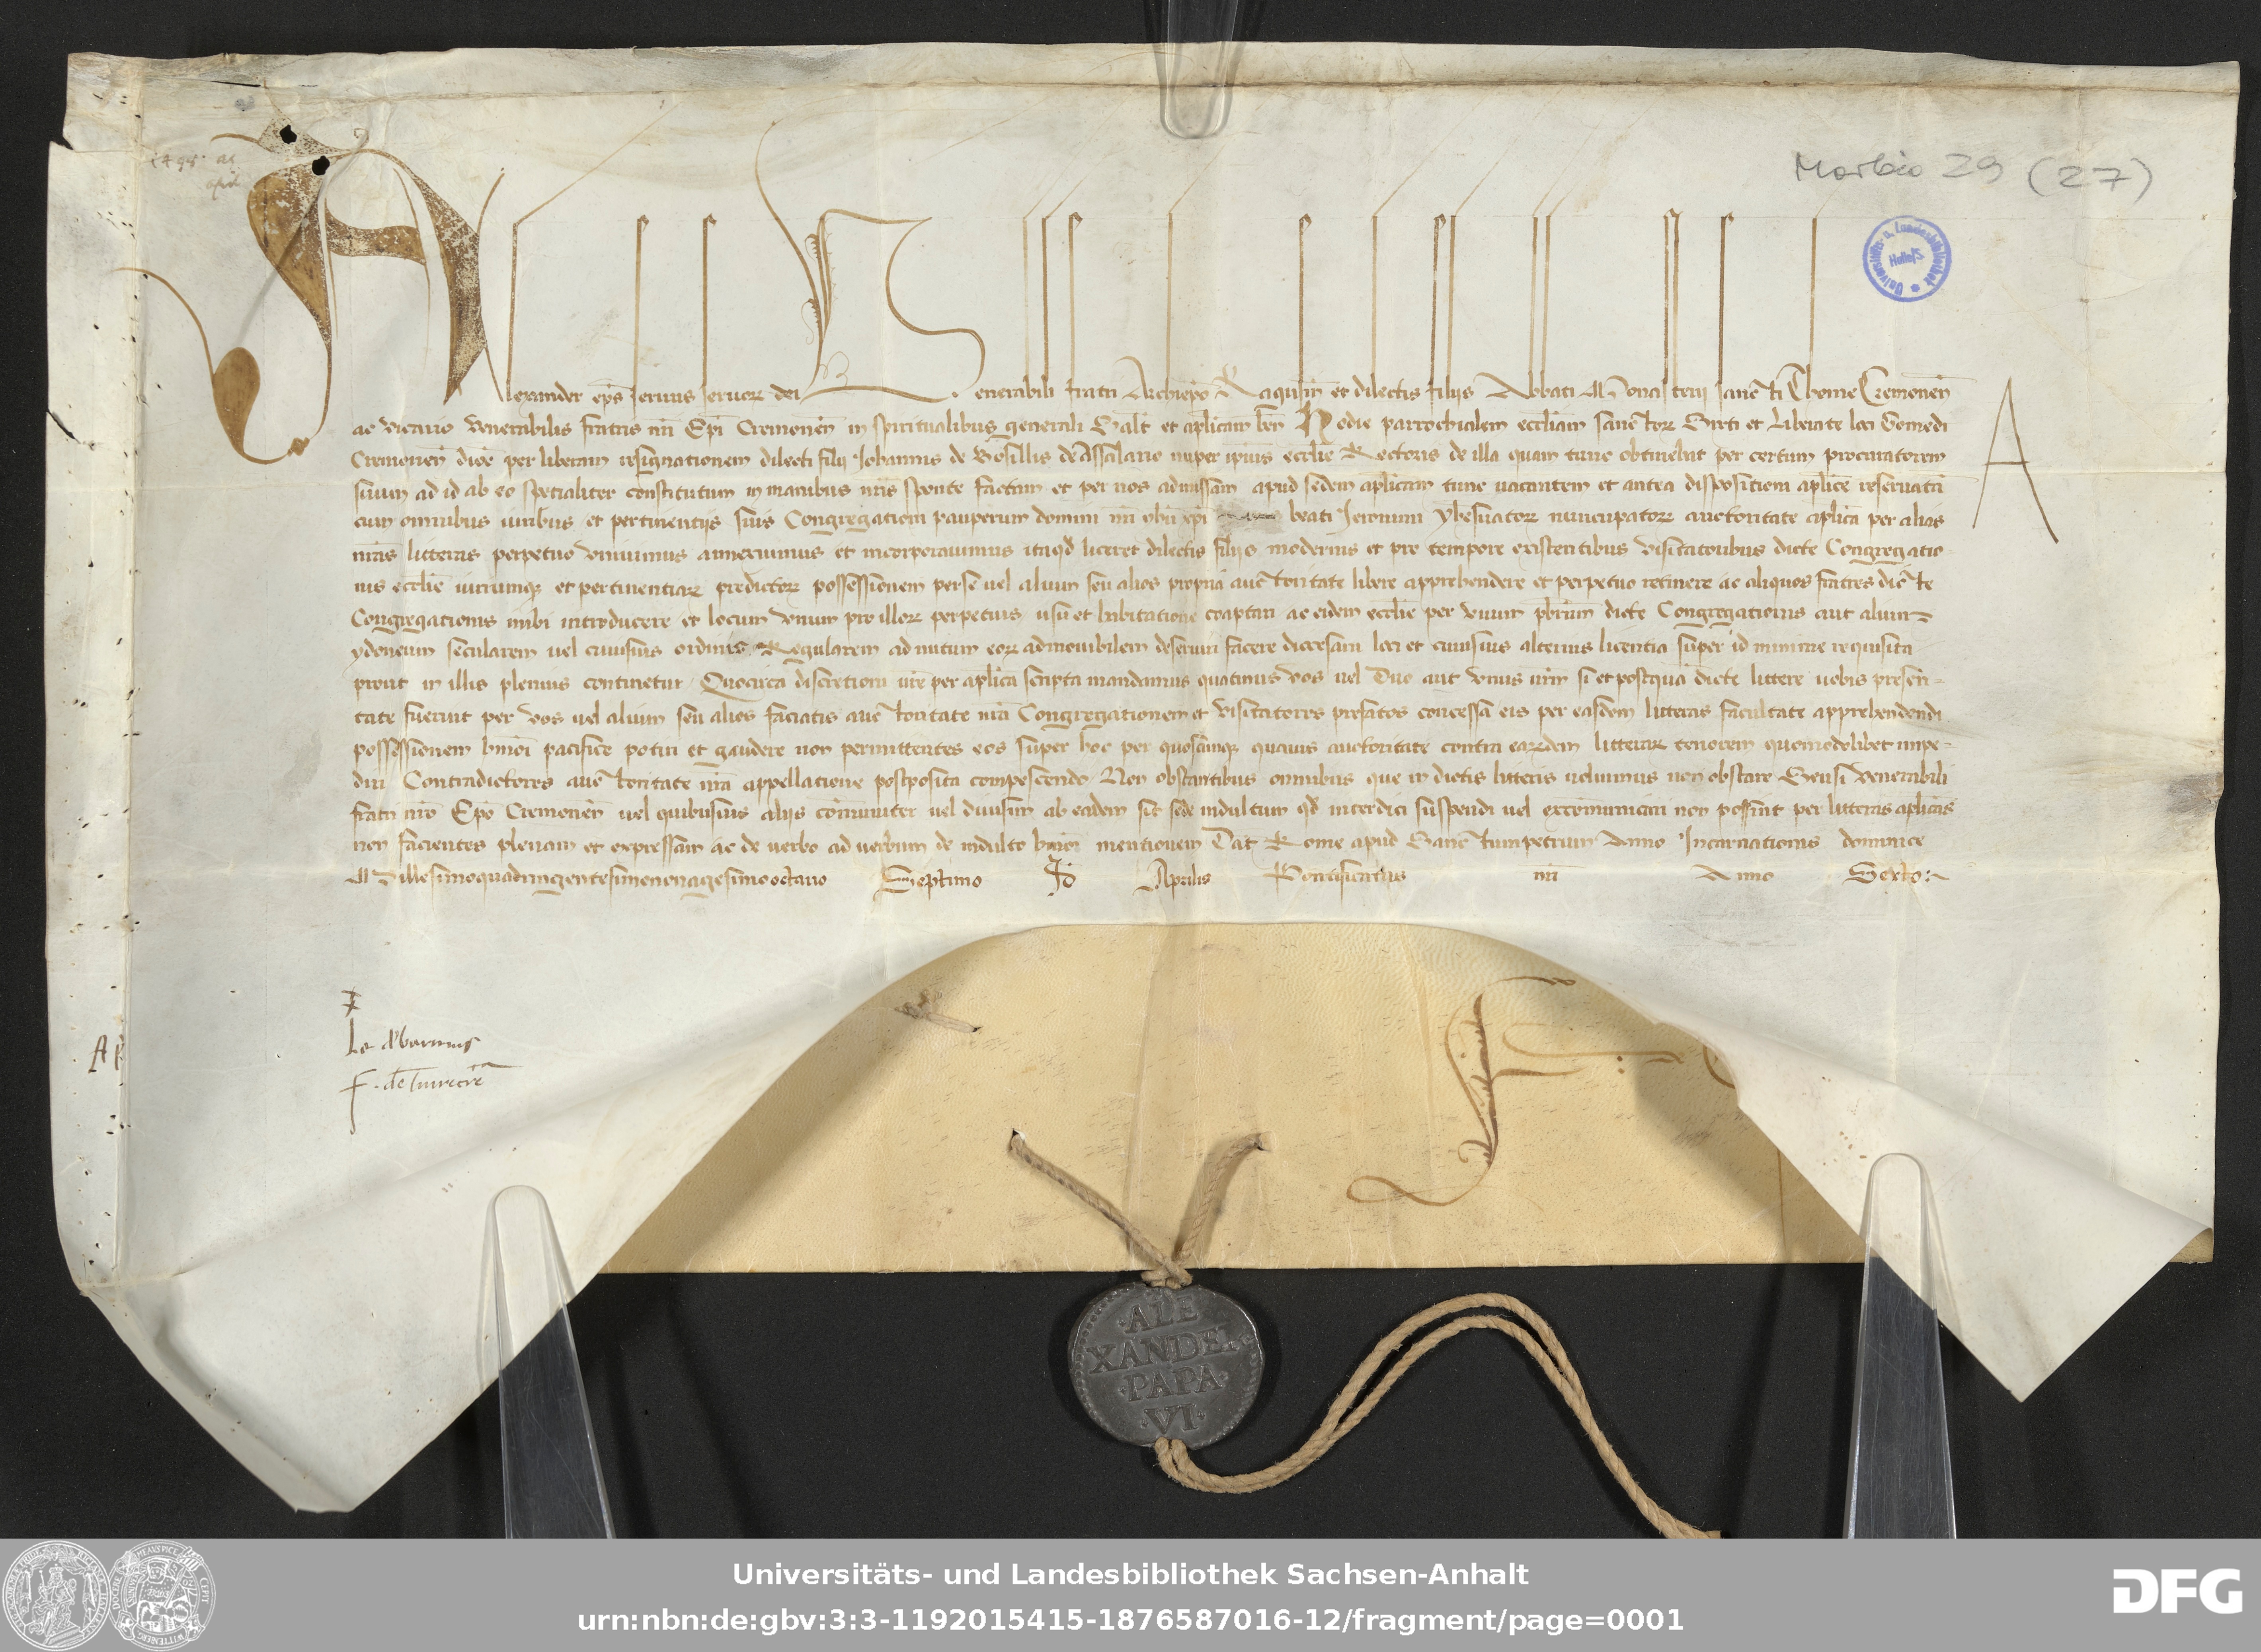 1498 ae
apl
Morbio 29 (27)
Universitäts- u. Landesbibliothek Halle/S.
Alexander ep̄s seruus seruoꝝ dei Venerabili fratri Archiep̄o Ragusin̄ et dilectis filijs Abbati Monasterij sancti Thome Cremonen̄
ac vicario venerabilis fratris nr̄i Ep̄i Cremonen̄ in spiritualibus generali Salt̄ et ap̄licam ben̄ Hodie parrochialem eccl̄iam sanctoꝝ Sirti et Liberate loci Gomedi
Cremonen̄ dioc̄ per liberam resignationem dilecti filij Johannis de nuper ip̄ius eccl̄ie Rectoris de illa quam tunc obtinebat per certum procuratorem
suum ad id ab eo specialiter constitutum in manibus nr̄is sponte factam et per nos admissam apud sedem ap̄licam tunc vacantem et antea dispositioni ap̄lice reseruatā
cum omnibus iuribus et pertinentijs suis Congregationi pauperum domini nr̄i yhū xp̄i beati Jeronimi yhesuatoꝝ nuncupatoꝝ auctoritate ap̄lica per alias
nr̄as litteras perpetuo vniuimus anneximus et incorporauimus itaqđ liceret dilectis filijs modernis et pro tempore existentibus visitatoribus dicte Congregatio
nis eccl̄ie iuriumqꝫ et pertinentiaꝝ predictoꝝ possessionem per se vel alium seu alios propria auctoritate libere apprehendere et perpetuo retinere ac aliquos fratres dicte
Congregationis inibi introducere et locum vnum pro illoꝝ perpetuis vsu et habitatione coaptari ac eidem eccl̄ie per vnum pr̄brum dicte Congregationis aut alium
ydoneum secularem vel cuiusuis ordinis Regularem ad nutum eoꝝ admouibilem deseruiri facere diocesani loci et cuiusuis alterius licentia super id minime requisita
prout in illis plenius continetur Quocirca discretioni vr̄e per ap̄lica scripta mandamus quatinus vos vel Duo aut vnus vr̄m si et postquā dicte littere vobis presen-
tate fuerint per vos vel alium seu alios faciatis auctoritate nr̄a Congregationem et visitatores prefatos concessa eis per easdem litteras facultate apprehendendi
possessionem hm̄oi pacifice potiri et gaudere non permittentes eos super hoc per quoscūmqꝫ quauis auctoritate contra earundem litteraꝝ tenorem quomodolibet impe-
diri Contradictores auctoritate nr̄a appellatione postposita compescendo Non obstantibus omnibus que in dictis litteris voluimus non obstare Seu si venerabili
fratri nr̄o Ep̄o Cremonen̄ vel quibusuis alijs cōmuniter vel diuisim ab eadem sit sede indultum qđ interdici suspendi vel excōmunicari non possint per litteras ap̄licas
non facientes plenam et expressam ac de verbo ad verbum de indulto hm̄oi mentionem Dat̄ Rome apud Sanctumpetrum Anno Incarnationis dominice
Millesimoquadringentesimononagesimooctauo Septimo Id̄ Aprilis Pontificatus nr̄i Anno Sexto
A
F. de
ALE
XANDER
PAPA
VI
Universitäts- und Landesbibliothek Sachsen-Anhalt
urn:nbn:de:gbv:3:3-1192015415-1876587016-12/fragment/page=0001
DFG